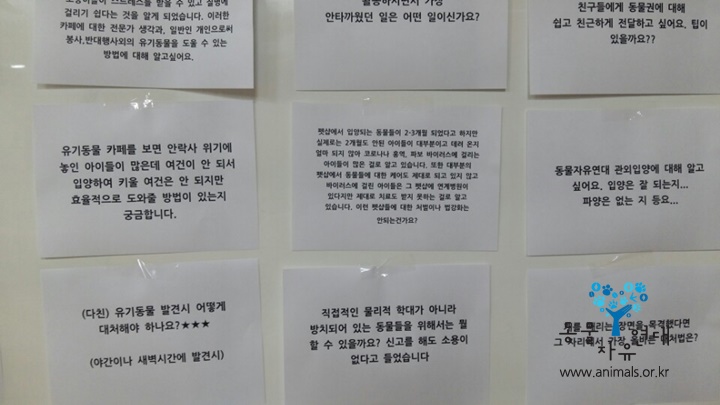 걸리기 쉽다는 것을 알게 되었습니다. 이러한
카페에 대한 전문가 생각과, 일반인 개인으로써
봉사,반대행사외의 유기동물을 도울 수 있는
방법에 대해 알고싶어요.
안타까웠던 일은 어떤 일이신가요?
친구들에게 동물권에 대해
쉽고 친근하게 전달하고 싶어요. 팁이
있을까요??
유기동물 카페를 보면 안락사 위기에
놓인 아이들이 많은데 여건이 안 되서
입양하여 키울 여건은 안 되지만
효율적으로 도와줄 방법이 있는지
궁금합니다.
펫샵에서 입양되는 동물들이 2-3개월 되었다고 하지만
실제로는 2개월도 안된 아이들이 대부분이고 데려 온지
얼마 되지 않아 코로나나 홍역, 파보 바이러스에 걸리는
아이들이 많은 걸로 알고 있습니다. 또한 대부분의
펫샵에서 동물들에 대한 케어도 제대로 되고 있지 않고
바이러스에 걸린 아이들은 그 펫샵에 연계병원이
있다지만 제대로 치료도 받지 못하는 걸로 알고
있습니다. 이런 펫샵들에 대한 처벌이나 법강화는
안되는건가요?
동물자유연대 관외입양에 대해 알고
싶어요. 입양은 잘 되는지...
파양은 없는 지 등요...
(다친) 유기동물 발견시 어떻게
대처해야 하나요?★★★
(야간이나 새벽시간에 발견시)
직접적인 물리적 학대가 아니라
방치되어 있는 동물들을 위해서는 뭘
할 수 있을까요? 신고를 해도 소용이
없다고 들었습니다
장면을 목격했다면
그 자리에서 가장 올바른 대처법은?
동물자유연대
www.animals.or.kr